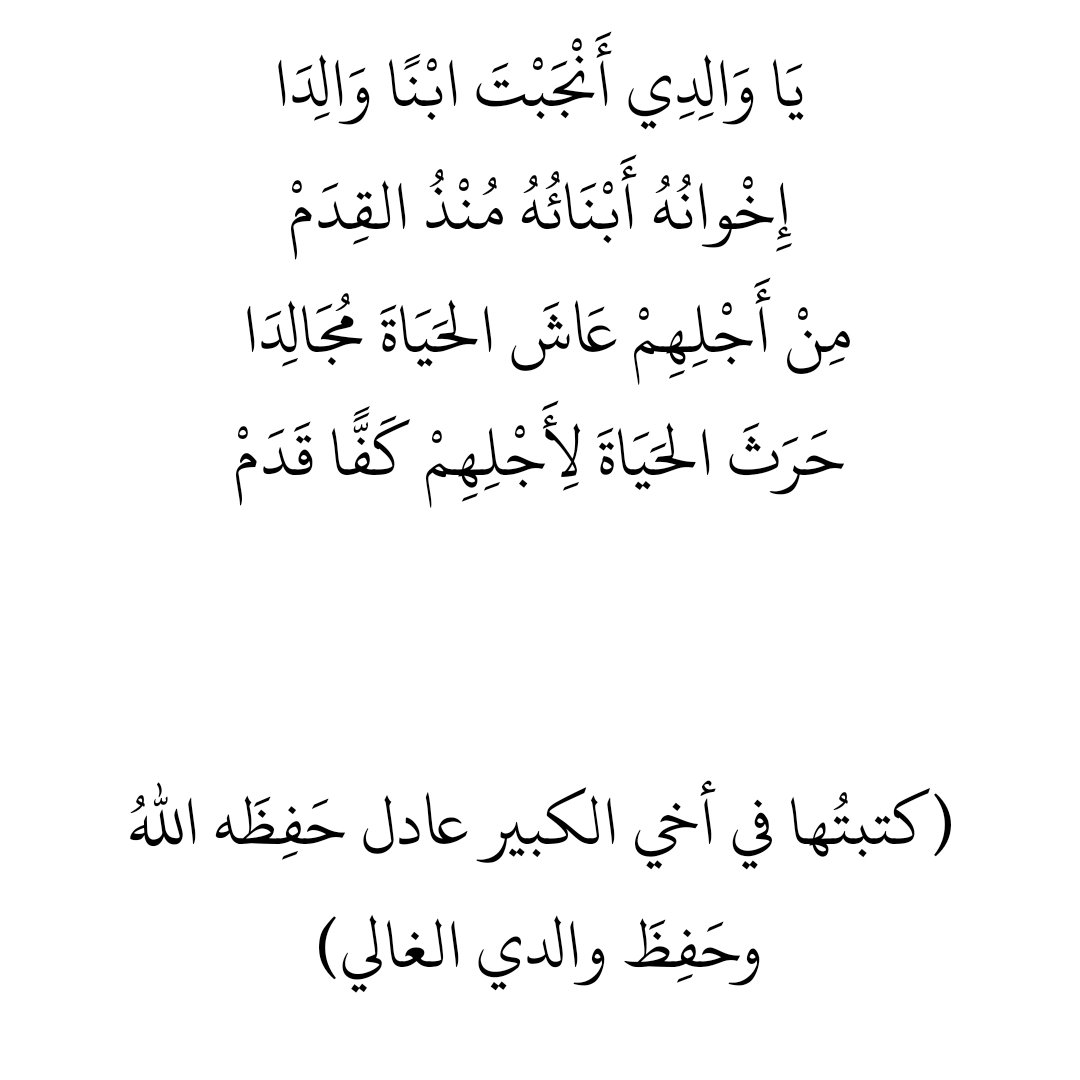 يَا وَالِدِي أَنْجَبْتَ ابْنًا وَالِدَا
إِخْوانُهُ أَبْنَائُهُ مُنْذُ القِدَمْ
مِنْ أَجْلِهِمْ عَاشَ الحَيَاةَ مُجَالِدَا
حَرَثَ الحَيَاةَ لِأَجْلِهِمْ كَفًّا قَدَمْ
(كتبتُها في أخي الكبير عادل حَفِظَه اللهُ
وحَفِظَ والدي الغالي)